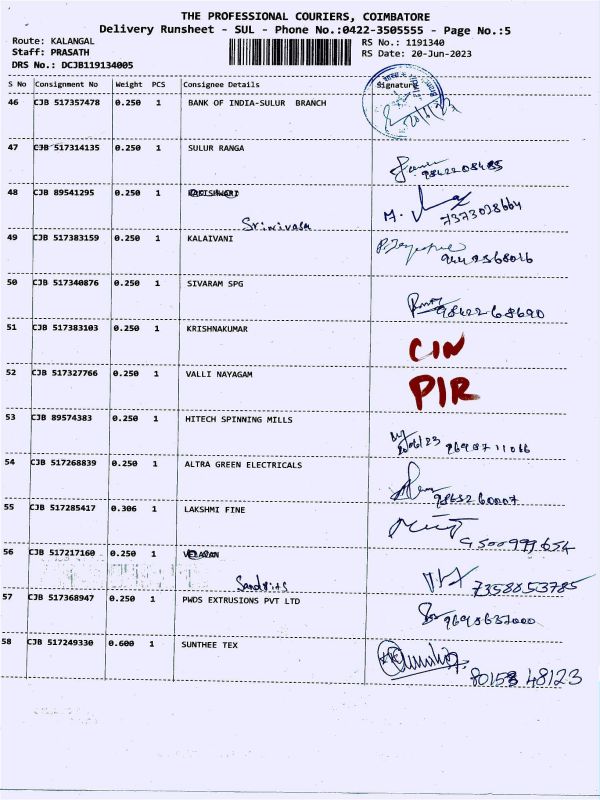 THE PROFESSIONAL COURIERS, COIMBATORE
Delivery Runsheet - SUL - Phone No.:0422-3505555 - Page No.:5
Route: KALANGAL
RS No.: 1191340
Staff: PRASATH
RS Date: 20-Jun-2023
DRS No.: DCJB119134005
S No Consignment No Weight PCS Consignee Details Signature
46 CJB 517357478 0.250 1 BANK OF INDIA-SULUR BRANCH
47 CJB 517314135 0.250 1 SULUR RANGA
9842208485
48 CJB 89541295 0.250 1
Srinivasa M. 7373028664
49 CJB 517383159 0.250 1 KALAIVANI
50 CJB 517340876 0.250 1 SIVARAM SPG
9842268690
51 CJB 517383103 0.250 1 KRISHNAKUMAR
CIN
52 CJB 517327766 0.250 1 VALLI NAYAGAM PIR
53 CJB 89574383 0.250 1 HITECH SPINNING MILLS
54 CJB 517268839 0.250 1 ALTRA GREEN ELECTRICALS
9865260007
55 CJB 517285417 0.306 1 LAKSHMI FINE
9500999654
56 CJB 517217160 0.250 1
7358853785
57 CJB 517368947 0.250 1 PWDS EXTRUSIONS PVT LTD
9698637000
58 CJB 517249330 0.600 1 SUNTHEE TEX
80158 48123